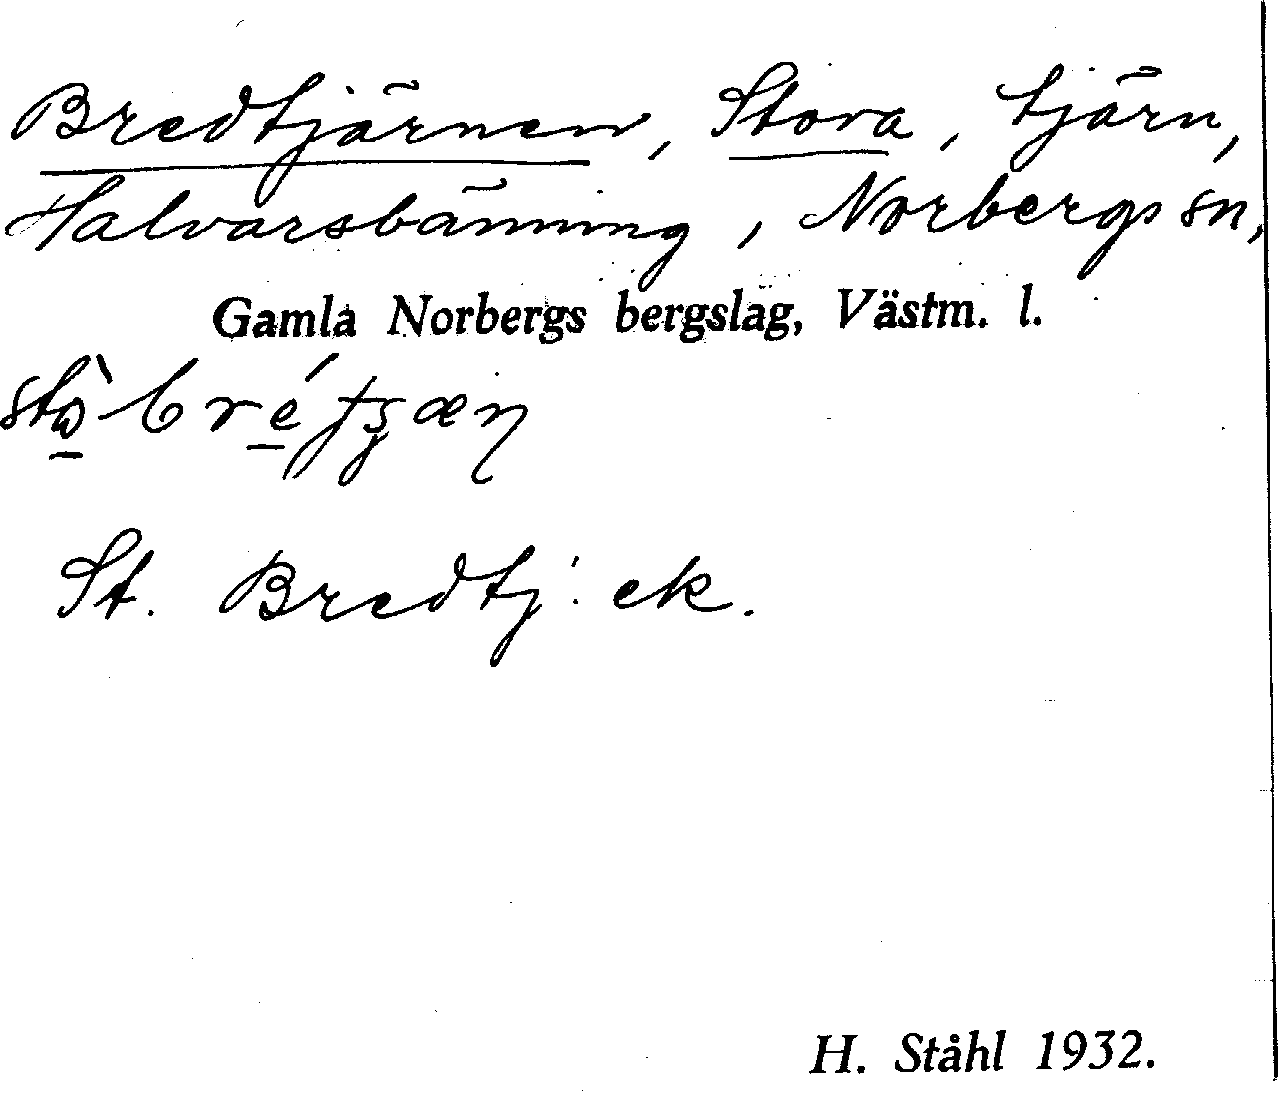 Bredtjärnen, Stora, tjärn,
Halvarsbänning, Norbergs sn,
Gamla Norbergs bergslag, Västm. l.
St. Bredtj: ek.
H. Ståhl 1932.